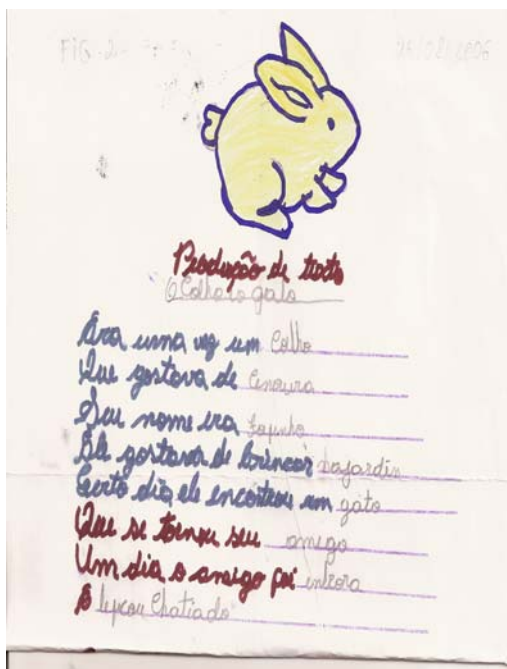 FiG-2
2006
Produção de texto
O Colho e o gato
Era uma vez um Colho
Que gostava de Cenoura
Seu nome era
Ele gostava de brincar
Certo dia ele encontrou um gato
Que se tornou seu amigo
Um dia o amigo foi
Chatiado